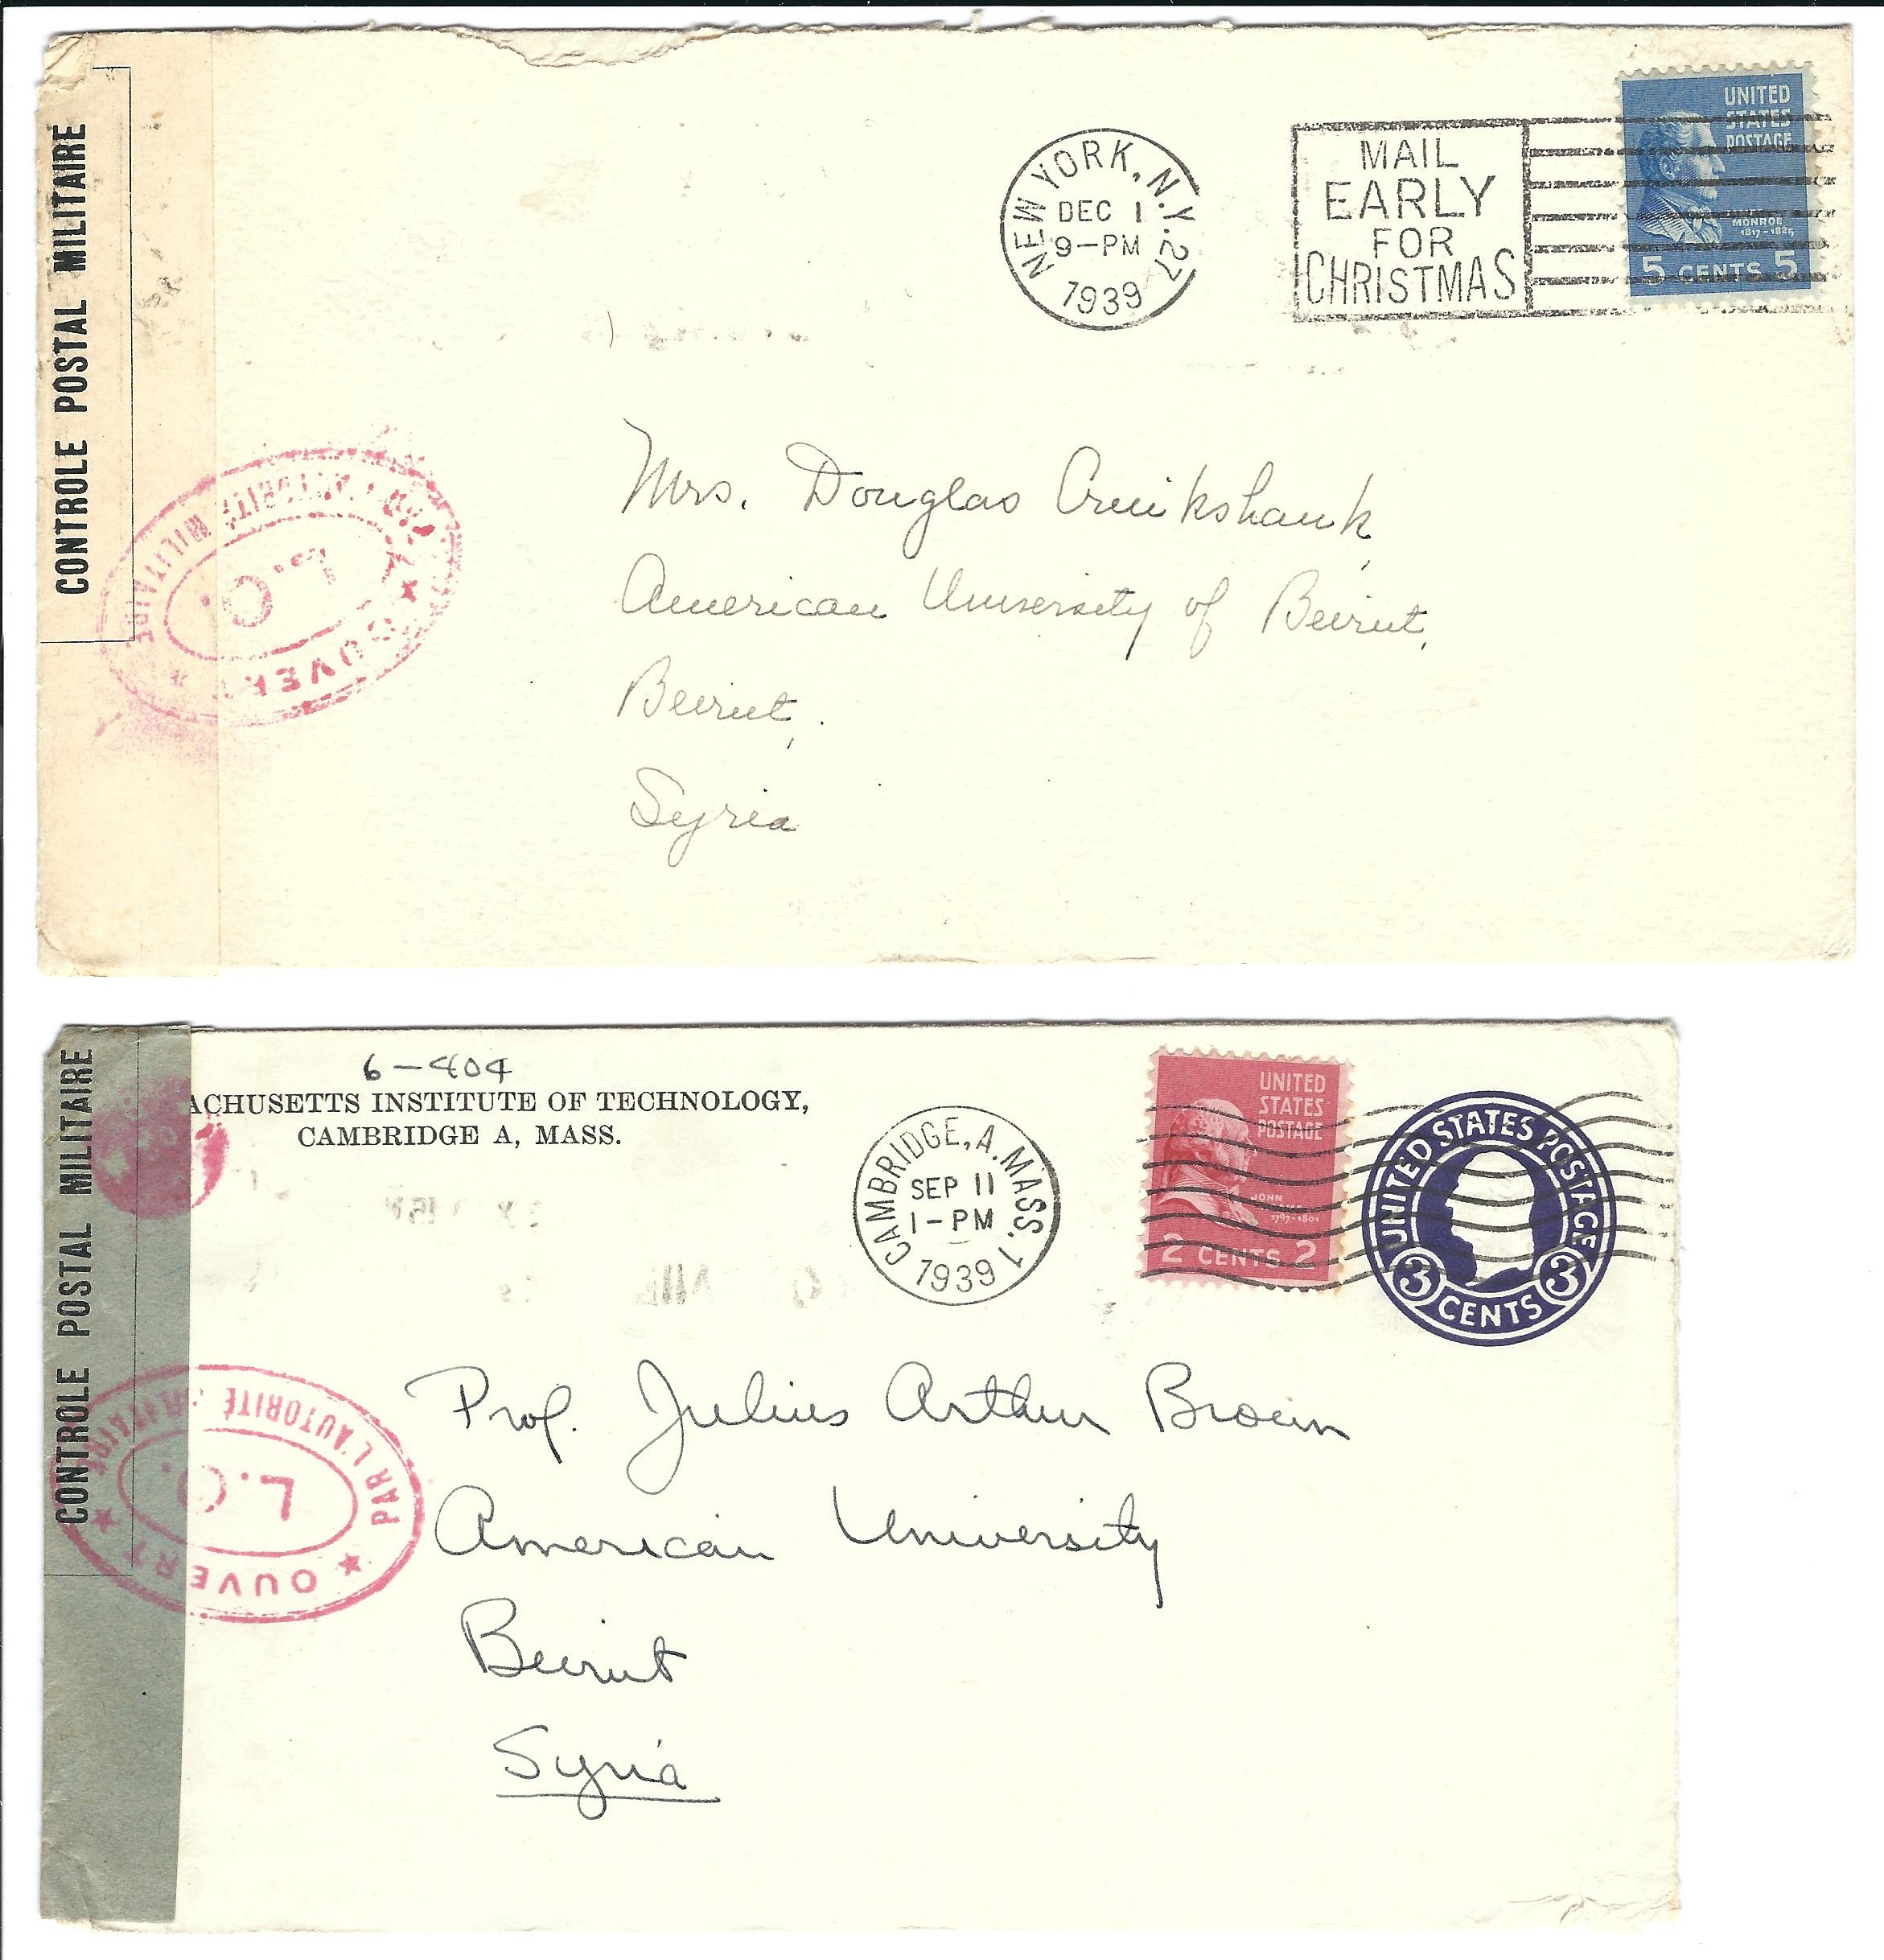 CONTROLE POSTAL MILITAIRE
NEW YORK, N.Y. 27
DEC 1
9-PM
1939
MAIL
EARLY
FOR
CHRISTMAS
UNITED
STATES
POSTAGE
MONROE
1817-1825
5 CENTS 5
OUVERT
L'AUTORITÉ MILITAIRE
L.C.
Mrs. Douglas Cruikshank,
American University of Beirut,
Beirut,
Syria
CONTROLE POSTAL MILITAIRE
6-404
ACHUSETTS INSTITUTE OF TECHNOLOGY,
CAMBRIDGE A, MASS.
CAMBRIDGE, A. MASS. 1
SEP 11
1-PM
1939
UNITED
STATES
POSTAGE
JOHN
1797-1801
2 CENTS 2
UNITED STATES POSTAGE
3 CENTS 3
OUVERT
PAR L'AUTORITÉ MILITAIRE
L.C.
Prof. Julius Arthur Brown
American University
Beirut
Syria